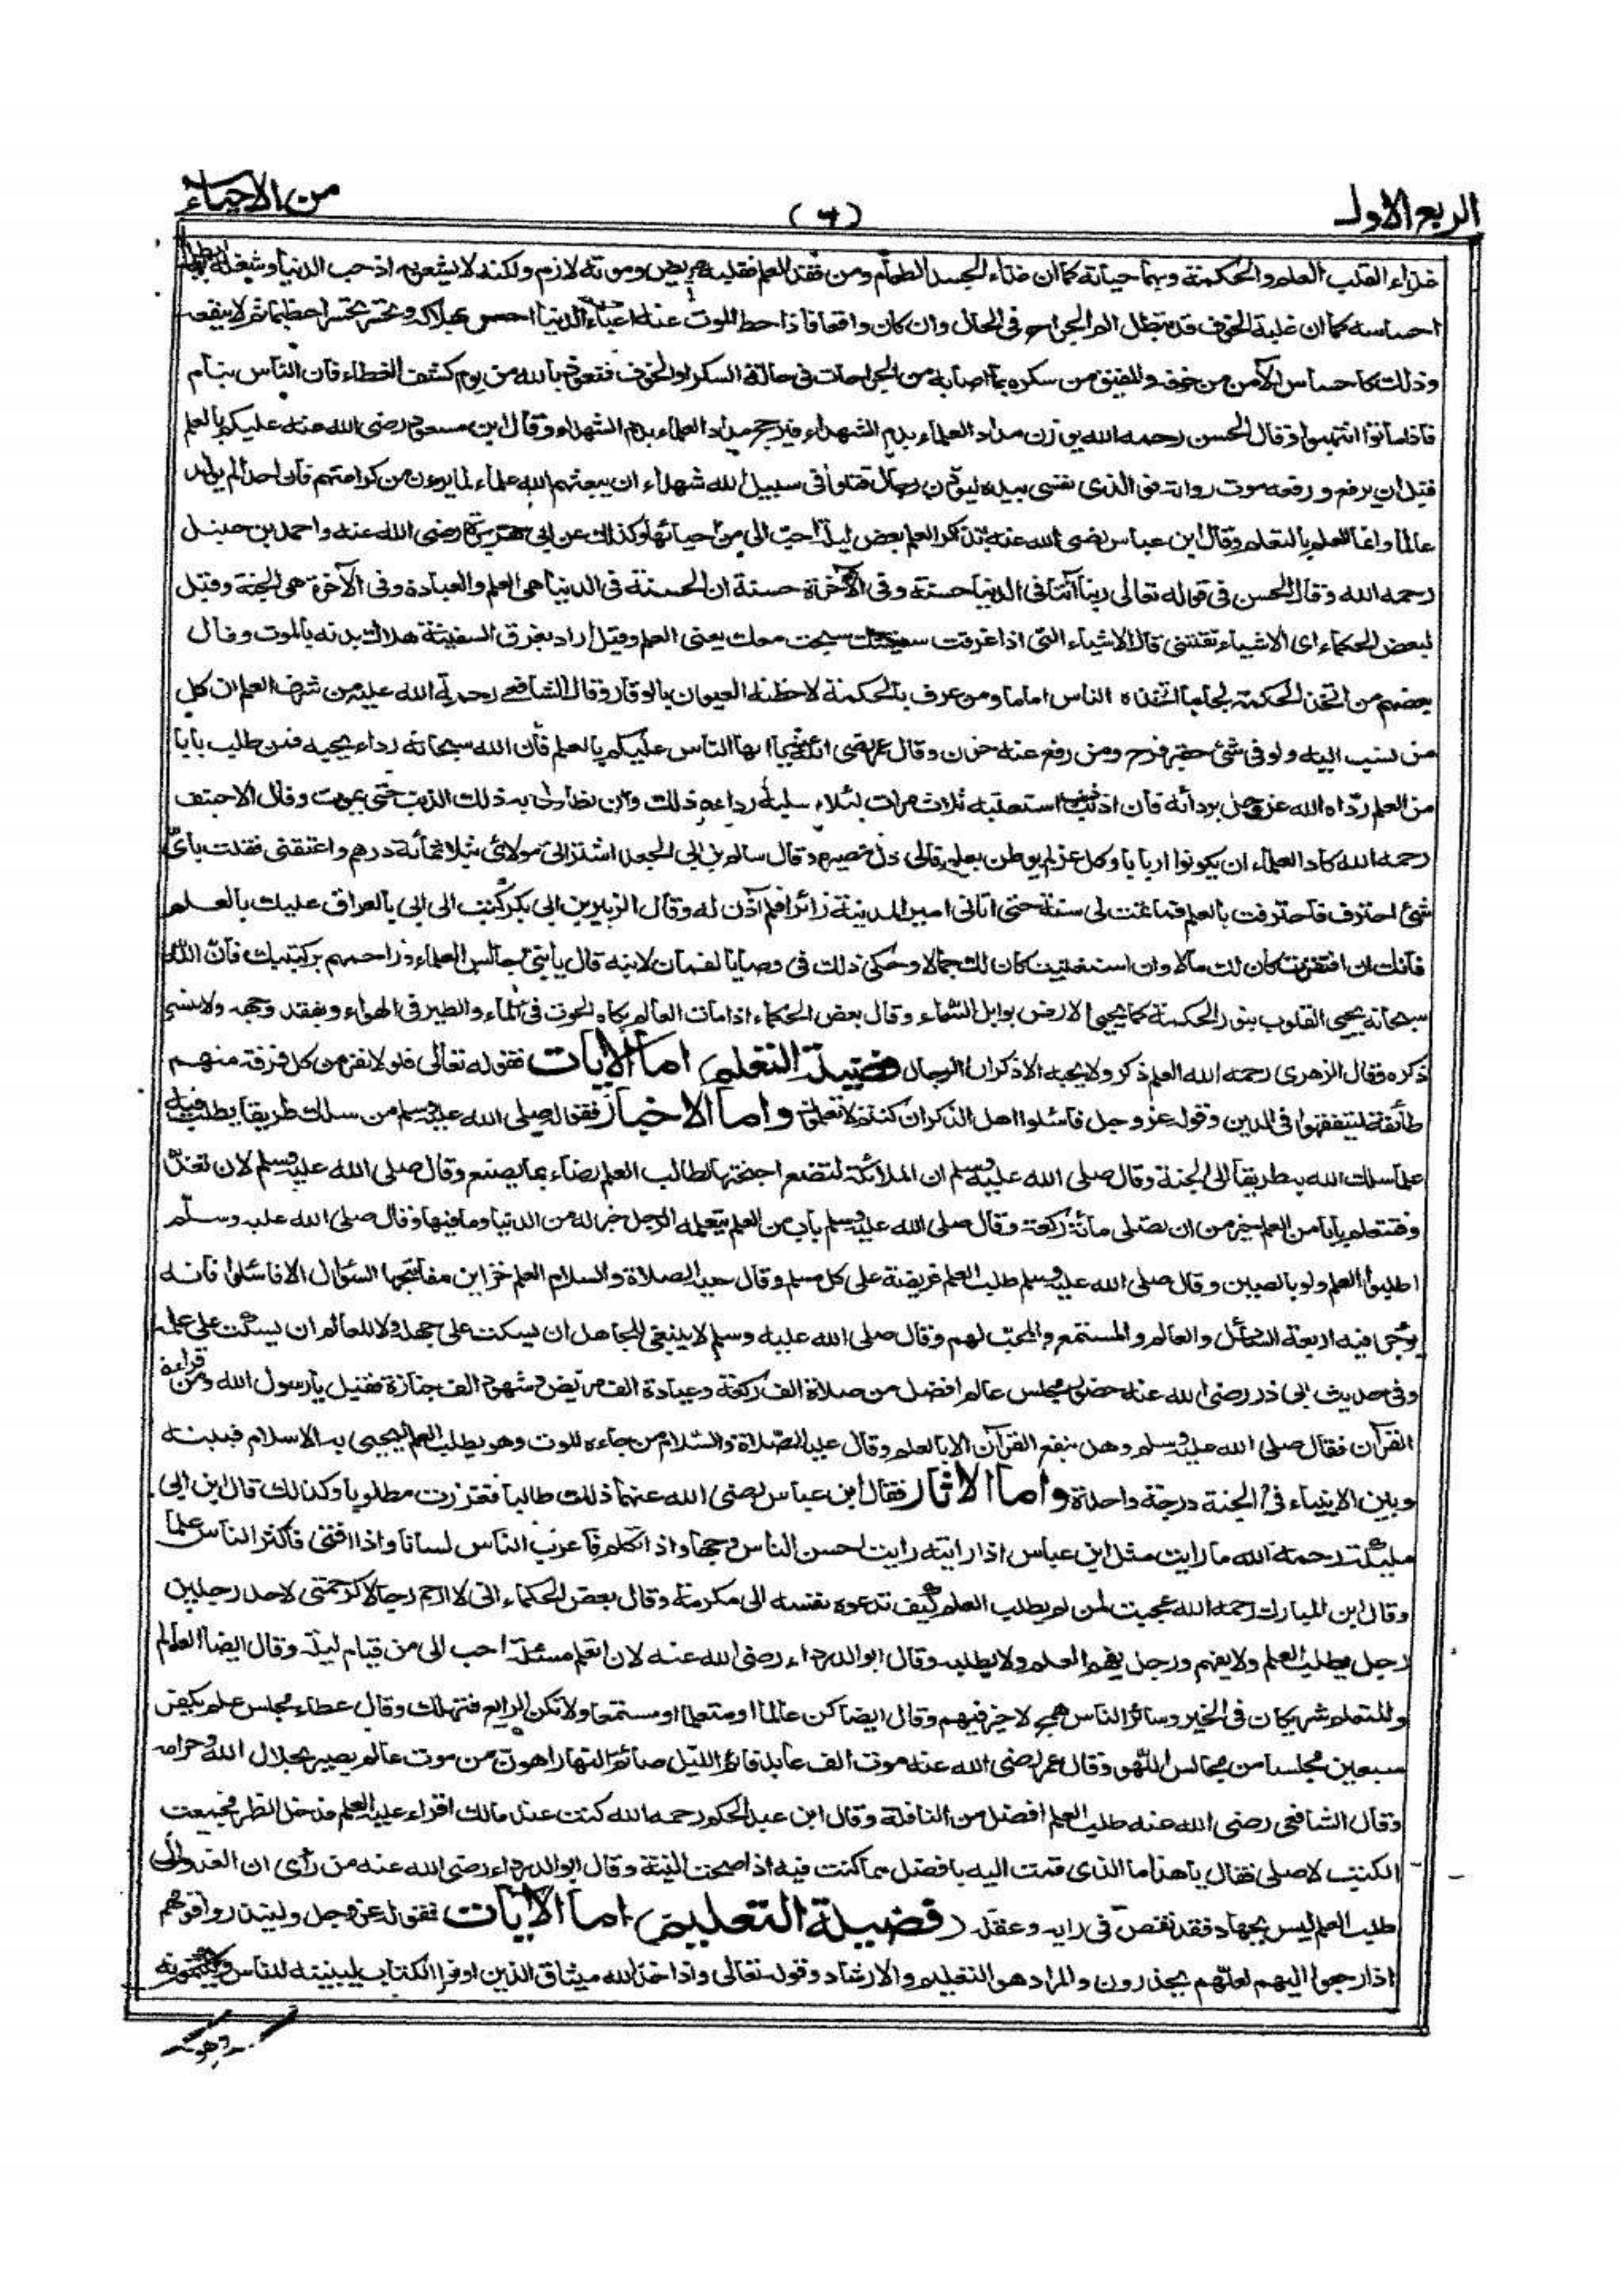 الربع الاول
(٦)
من الاحياء
غذاء القلب العلم والحكمة وبهما حياته كما ان غذاء الجسد الطعام ومن فقد العلم فقلبه مريض وموته لازم ولكنه لا يشعر به اذ حب الدنيا وشغله بها ابطل
احساسه كما ان غلبة الخوف قد تبطل الم الجراح في الحال وان كان واقعا فاذا حط الموت عنه اعباء الدنيا احس بهلاكه وتحسر تحسرا عظيما ثم لا ينفعه
وذلك كاحساس الآمن من خوفه والمفيق من سكره بما اصابه من الجراحات في حالة السكر او الخوف فنعوذ بالله من يوم كشف الغطاء فان الناس نيام
فاذا ماتوا انتبهوا وقال الحسن رحمه الله يوزن مداد العلماء بدم الشهداء فيرجح مداد العلماء بدم الشهداء وقال ابن مسعود رضى الله عنه عليكم بالعلم
قبل ان يرفع ورفعه موت رواته فو الذى نفسى بيده ليودن رجال قتلوا فى سبيل الله شهداء ان يبعثهم الله علماء لما يرون من كرامتهم فان احدا لم يولد
عالما وانما العلم بالتعلم وقال ابن عباس رضى الله عنه تذاكر العلم بعض ليلة احب الى من احيائها وكذلك عن ابى هريرة رضى الله عنه واحمد بن حنبل
رحمه الله وقال الحسن فى قوله تعالى ربنا آتنا فى الدنيا حسنة وفى الآخرة حسنة ان الحسنة فى الدنيا هى العلم والعبادة وفى الآخرة هى الجنة وقيل
لبعض الحكماء اى الاشياء تقتنى قال الاشياء التى اذا غرقت سفينتك سبحت معك يعنى العلم وقيل اراد بغرق السفينة هلاك بدنه بالموت وقال
بعضهم من اتخذ الحكمة لجاما اتخذه الناس اماما ومن عرف بالحكمة لاحظته العيون بالوقار وقال الشافعى رحمة الله عليه من شرف العلم ان كل
من نسب اليه ولو فى شئ حقير فرح ومن رفع عنه حزن وقال عمر رضى الله عنه يا ايها الناس عليكم بالعلم فان الله سبحانه رداء يحبه فمن طلب بابا
من العلم رداه الله عز وجل بردائه فان اذنب ذنبا استعتبه ثلاث مرات لئلا يسلبه رداءه ذلك وان تطاول به ذلك الذنب حتى يموت وقال الاحنف
رحمه الله كاد العلماء ان يكونوا اربابا وكل عز لم يوطن بعلم فالى ذل مصيره وقال سالم بن ابى الجعد اشترانى مولائى بثلاثمائة درهم واعتقنى فقلت باى
شئ احترف فاحترفت بالعلم فما تمت لى سنة حتى اتانى امير المدينة زائرا فلم آذن له وقال الزبير بن ابى بكر كتب الى ابى بالعراق عليك بالعلم
فانك ان افتقرت كان لك مالا وان استغنيت كان لك جمالا وحكى ذلك فى وصايا لقمان لابنه قال يا بنى جالس العلماء وزاحمهم بركبتيك فان الله
سبحانه يحيى القلوب بنور الحكمة كما يحيى الارض بوابل السماء وقال بعض الحكماء اذا مات العالم بكاه الحوت فى الماء والطير فى الهواء ويفقد وجهه ولا ينسى
ذكره وقال الزهرى رحمه الله العلم ذكر ولا يحبه الا ذكران الرجال فضيلة التعلم اما الآيات فقوله تعالى فلولا نفر من كل فرقة منهم
طائفة ليتفقهوا فى الدين وقوله عز وجل فاسئلوا اهل الذكر ان كنتم لا تعلمون واما الاخبار فقوله صلى الله عليه وسلم من سلك طريقا يطلب فيه
علما سلك الله به طريقا الى الجنة وقال صلى الله عليه وسلم ان الملائكة لتضع اجنحتها لطالب العلم رضاء بما يصنع وقال صلى الله عليه وسلم لان تغد
وفتتعلم بابا من العلم خير من ان تصلى مائة ركعة وقال صلى الله عليه وسلم باب من العلم يتعلمه الرجل خير له من الدنيا وما فيها وقال صلى الله عليه وسلم
اطلبوا العلم ولو بالصين وقال صلى الله عليه وسلم طلب العلم فريضة على كل مسلم وقال عليه الصلاة والسلام العلم خزاين مفاتيحها السؤال الا فاسئلوا فانه
يوجر فيه اربعة السائل والعالم والمستمع والمحب لهم وقال صلى الله عليه وسلم لا ينبغى للجاهل ان يسكت على جهله ولا للعالم ان يسكت على علمه
وفى حديث ابى ذر رضى الله عنه حضور مجلس عالم افضل من صلاة الف ركعة وعيادة الف مريض وشهود الف جنازة فقيل يا رسول الله ومن قراءة
القرآن فقال صلى الله عليه وسلم وهل ينفع القرآن الا بالعلم وقال عليه الصلاة والسلام من جاءه الموت وهو يطلب العلم ليحيى به الاسلام فبينه
وبين الانبياء فى الجنة درجة واحدة واما الاثار فقال ابن عباس رضى الله عنهما ذللت طالبا فعززت مطلوبا وكذلك قال ابن ابى
مليكة رحمه الله ما رايت مثل ابن عباس اذا رايته رايت احسن الناس وجها واذا تكلم فاعرب الناس لسانا واذا افتى فاكثر الناس علما
وقال ابن المبارك رحمه الله عجبت لمن لم يطلب العلم كيف تدعوه نفسه الى مكرمة وقال بعض الحكماء انى لا ارحم رجالا كرحمتى لاحد رجلين
رجل يطلب العلم ولا يفهم ورجل يفهم العلم ولا يطلبه وقال ابو الدرداء رضى الله عنه لان اتعلم مسئلة احب الى من قيام ليلة وقال ايضا العالم
والمتعلم شريكان فى الخير وسائر الناس همج لا خير فيهم وقال ايضا كن عالما او متعلما او مستمعا ولا تكن الرابع فتهلك وقال عطاء مجلس علم يكفر
سبعين مجلسا من مجالس اللهو وقال عمر رضى الله عنه موت الف عابد قائم الليل صائم النهار اهون من موت عالم بصير بحلال الله وحرامه
وقال الشافعى رضى الله عنه طلب العلم افضل من النافلة وقال ابن عبد الحكم رحمه الله كنت عند مالك اقراء عليه العلم فدخل الظهر فجمعت
الكتب لاصلى فقال يا هذا ما الذى قمت اليه بافضل مما كنت فيه اذا صحت النية وقال ابو الدرداء رضى الله عنه من رأى ان الغدو الى
طلب العلم ليس بجهاد فقد نقص فى رايه وعقله فضيلة التعليم اما الآيات فقوله عز وجل ولينذروا قومهم
اذا رجعوا اليهم لعلهم يحذرون والمراد هو التعليم والارشاد وقوله تعالى واذ اخذ الله ميثاق الذين اوتوا الكتاب ليبيننه للناس ولا يكتمونه
وهو